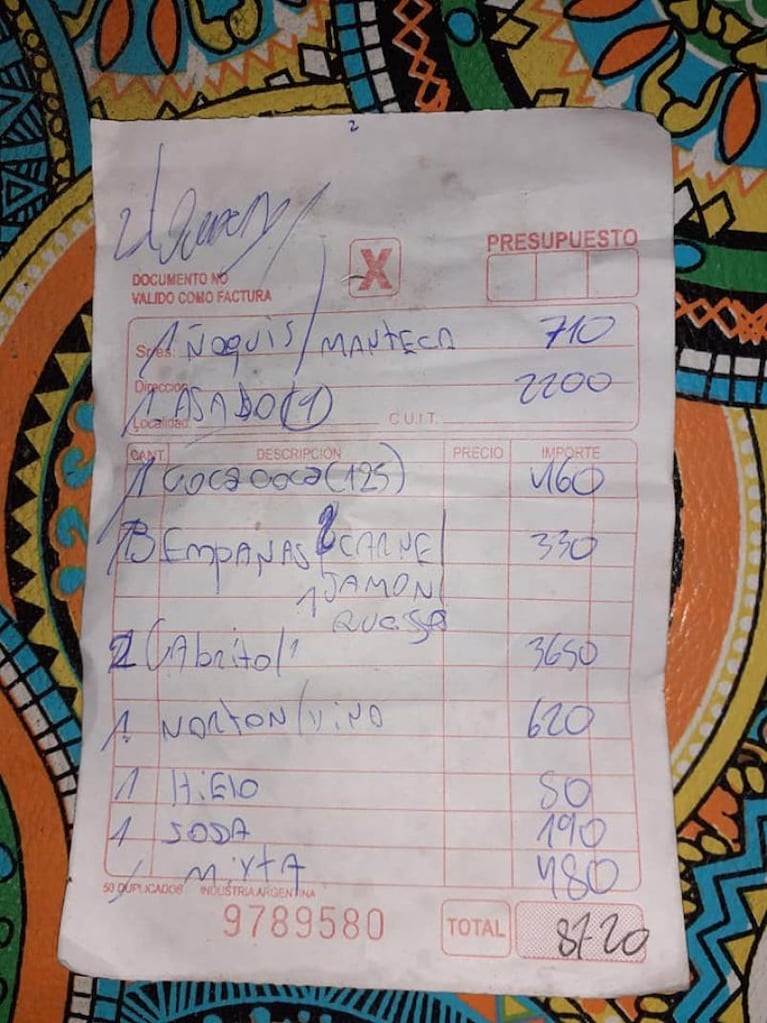 2
DOCUMENTO NO
VALIDO COMO FACTURA
X
PRESUPUESTO
Sres:
1 ÑOQUIS/MANTECA 710
Dirección
1 ASADO (1) 2200
Localidad: C.U.I.T.
CANT. DESCRIPCIÓN PRECIO IMPORTE
1 COCA COCA (125) 460
3 EMPANAS 2 CARNE 330
1 JAMON
QUESO
2 CAbrito/1 3650
1 NORTON/VINO 620
1 HIELO 80
1 SODA 190
1 MIXTA 480
50 DUPLICADOS INDUSTRIA ARGENTINA
9789580
TOTAL 8720